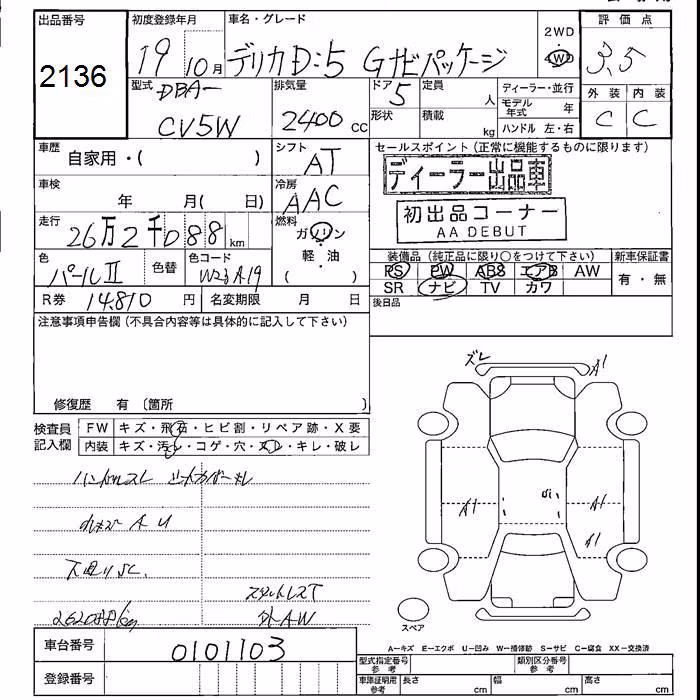 出品番号 初度登録年月 車名・グレード 2WD 評価点
2136 19 10月 デリカD:5 Gナビパッケージ 4WD 3.5
型式 DBA- 排気量 ドア 5 定員 人 ディーラー・並行 外装 内装
CV5W 2400cc 形状 積載 kg モデル年式 年 C C
ハンドル 左・右
車歴 自家用・( ) シフト AT セールスポイント(正常に機能するものに限ります)
ディーラー出品車
車検 年 月( 日) 冷房 AAC
初出品コーナー
AA DEBUT
走行 26万2千088km 燃料 ガソリン
軽・油
( )
色 パールⅡ 色替 色コード W23A19 装備品(純正品に限り○をつけて下さい) 新車保証書
PS PW ABS エアB AW 有・無
SR ナビ TV カワ
R券 14,810円 名変期限 月 日 後日品
注意事項申告欄(不具合内容等は具体的に記入して下さい)
修復歴 有(箇所 )
ズレ A1
検査員記入欄 FW キズ・飛石・ヒビ割・リペア跡・X要
内装 キズ・汚レ・コゲ・穴・スレ・キレ・破レ
ハンドルスレ シートカバーキレ
A1 A1
A1
各キズ A U
下廻りSC.
262088km
スタットレスT
外AW
スペア
A-キズ E-エクボ U-凹み W-補修跡 S-サビ C-腐食 XX-交換済
車台番号 0101103
型式指定番号参考 類別区分番号参考
登録番号 車庫証明用参考 長さ cm 幅 cm 高さ cm